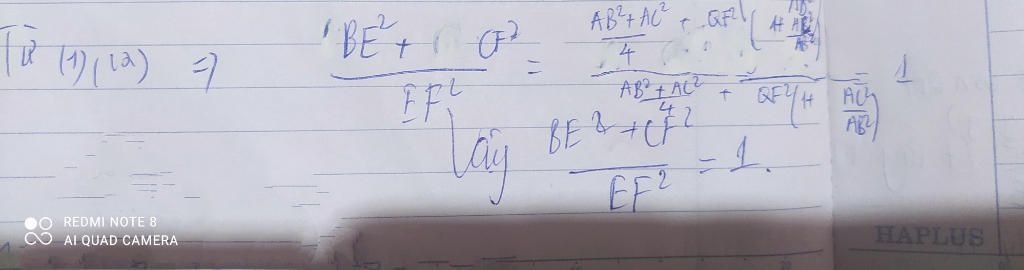 Từ (1), (2) => BE² + CF² / EF² = AB² + AC² / 4 + QF² (1 + AC² / AB²) / AB² + AC² / 4 + QF² (1 + AC² / AB²) = 1
Vậy BE² + CF² / EF² = 1.
REDMI NOTE 8
AI QUAD CAMERA
HAPLUS